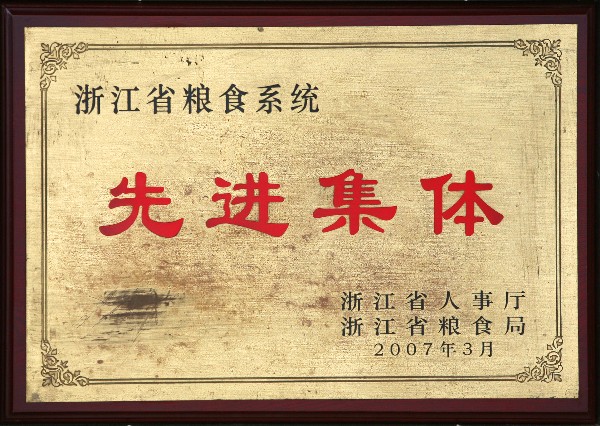 浙江省粮食系统
先进集体
浙江省人事厅
浙江省粮食局
2007年3月